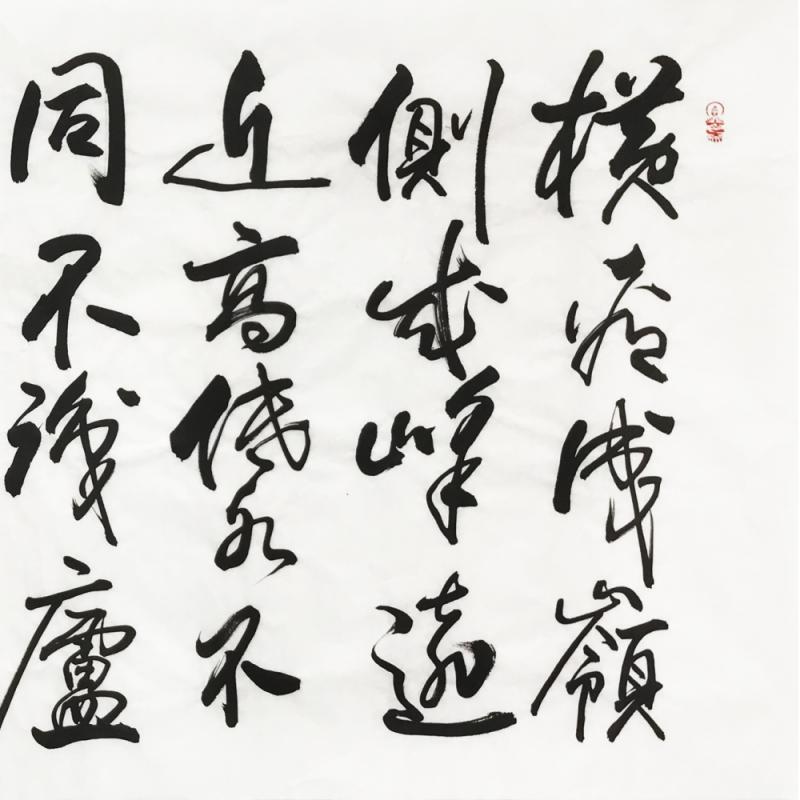 橫看成嶺
側成峰遠
近高低各不
同不識廬